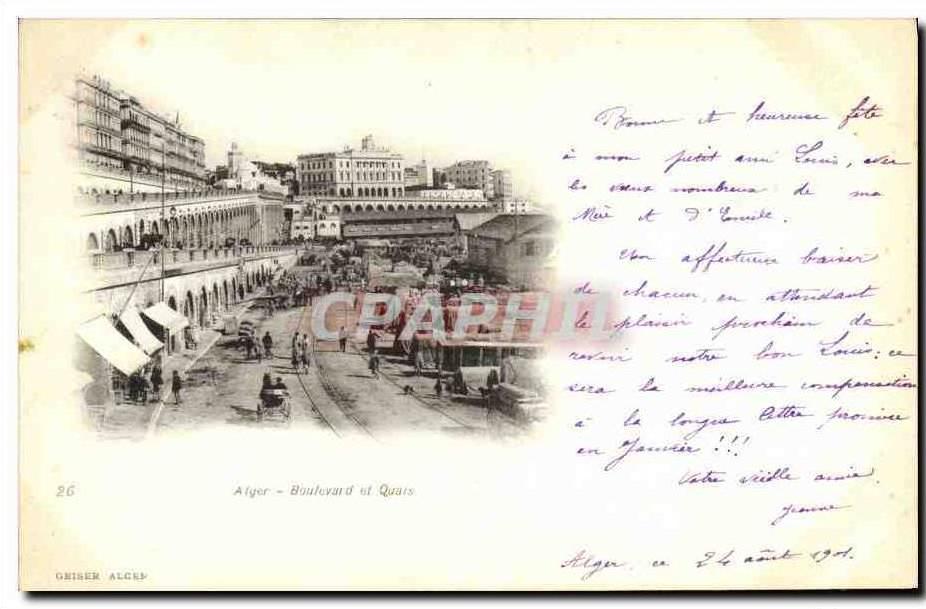 Bonne et heureuse fête
à mon petit ami Louis, avec
les vœux nombreux de ma
Mère et d'Emile.
Un affectueux baiser
de chacun, en attendant
le plaisir prochain de
revoir notre bon Louis: ce
sera la meilleure compensation
à la longue lettre promise
en Janvier !!!
Votre vieille amie,
Jeanne
Alger, ce 24 août 1901.
CPARHIL
26
Alger - Boulevard et Quais
GEISER ALGER